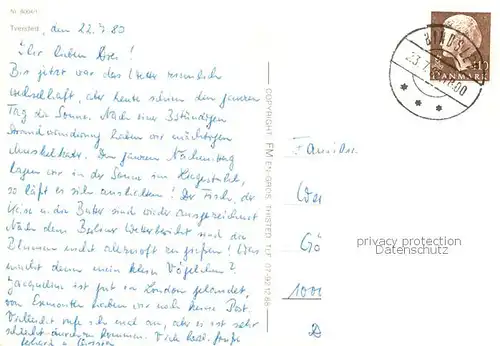 Nr. 80061
Tversted, den 22.7.80
Ihr lieben Drei!
Bis jetzt war das Wetter ziemlich
wechselhaft, aber heute schien den ganzen
Tag die Sonne. Nach einer 3stündigen
Strandwanderung haben wir mächtigen
Muskelkater. Den ganzen Nachmittag
lagen wir in der Sonne im
so läßt es sich aushalten! Der Fisch, der
Käse u. die Butter sind wieder ausgezeichnet
Nach dem Berliner Wetterbericht sind die
Blumen nicht allzuoft zu gießen! Was
macht denn mein kleines Vögelchen?
Jacqueline ist gut in London gelandet,
von Exmouth haben wir noch keine Post.
Vielleicht rufe ich mal an, aber es ist sehr
schlecht durchzukommen. Viele
COPYRIGHT FM EN-GROS, THISTED TLF.
BINDSLEV
23.7.
DANMARK
Familie
1000
privacy protection
Datenschutz